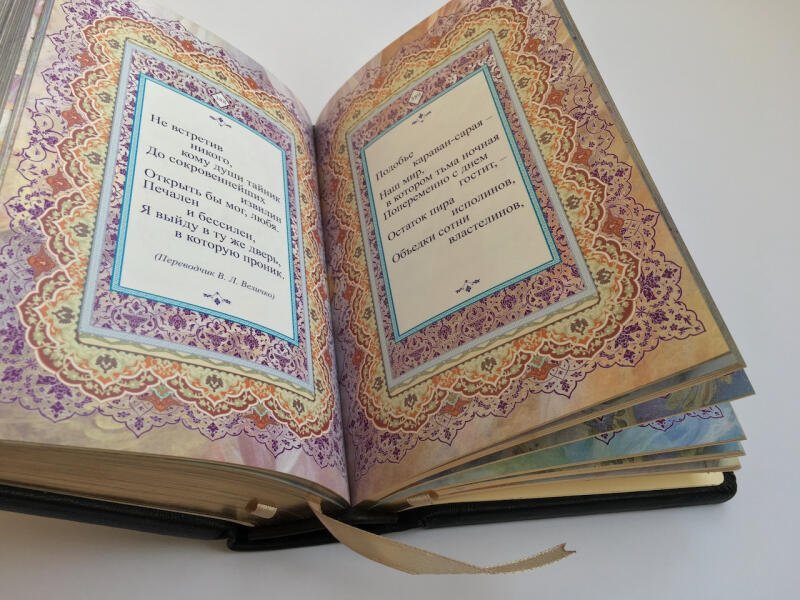 Не встретив
никого,
кому души тайник
До сокровеннейших
извилин
Открыть бы мог, любя.
Печален
и бессилен,
Я выйду в ту же дверь,
в которую проник.
(Переводчик В. Л. Величко)
Подобье
караван-сарая —
Наш мир,
в котором тьма ночная
Попеременно с днем
гостит, —
Остаток пира
исполинов,
Объедки сотни
властелинов,